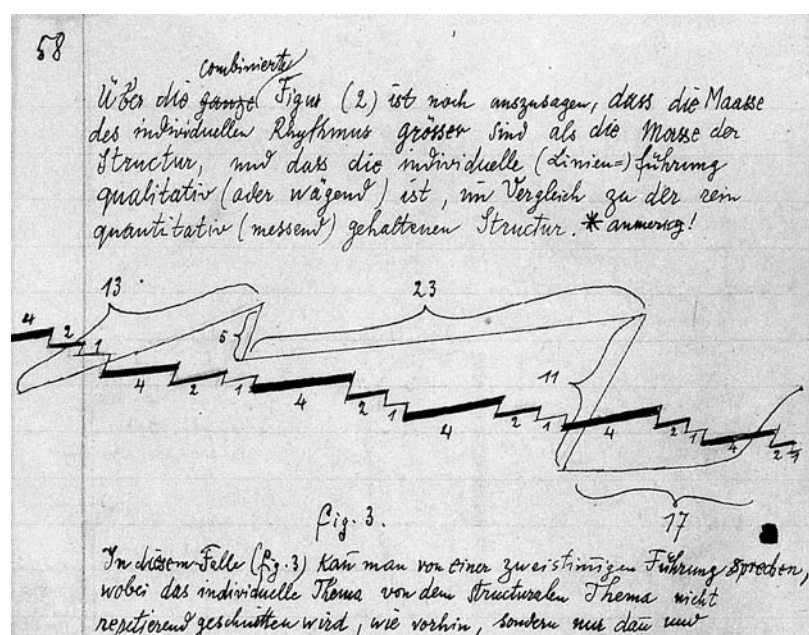 58
combinierte
Über die ganze Figur (2) ist noch auszusagen, dass die Maasse
des individuellen Rhythmus grösser sind als die Masse der
Structur, und dass die individuelle (Linien=)führung
qualitativ (oder wägend) ist, im Vergleich zu der rein
quantitativ (messend) gehaltenen Structur. * anmerkg!
13 23
4 2 1 5
4 2 1 4 2 1 4 2 1 11 4 2 1 4 2 1
17
fig. 3.
In diesem Falle (fig. 3) kan̄ man von einer zweistim̄igen Führung sprechen,
wobei das individuelle Thema von dem structuralen Thema nicht
repetierend geschnitten wird, wie vorhin, sondern nur dan̄ und